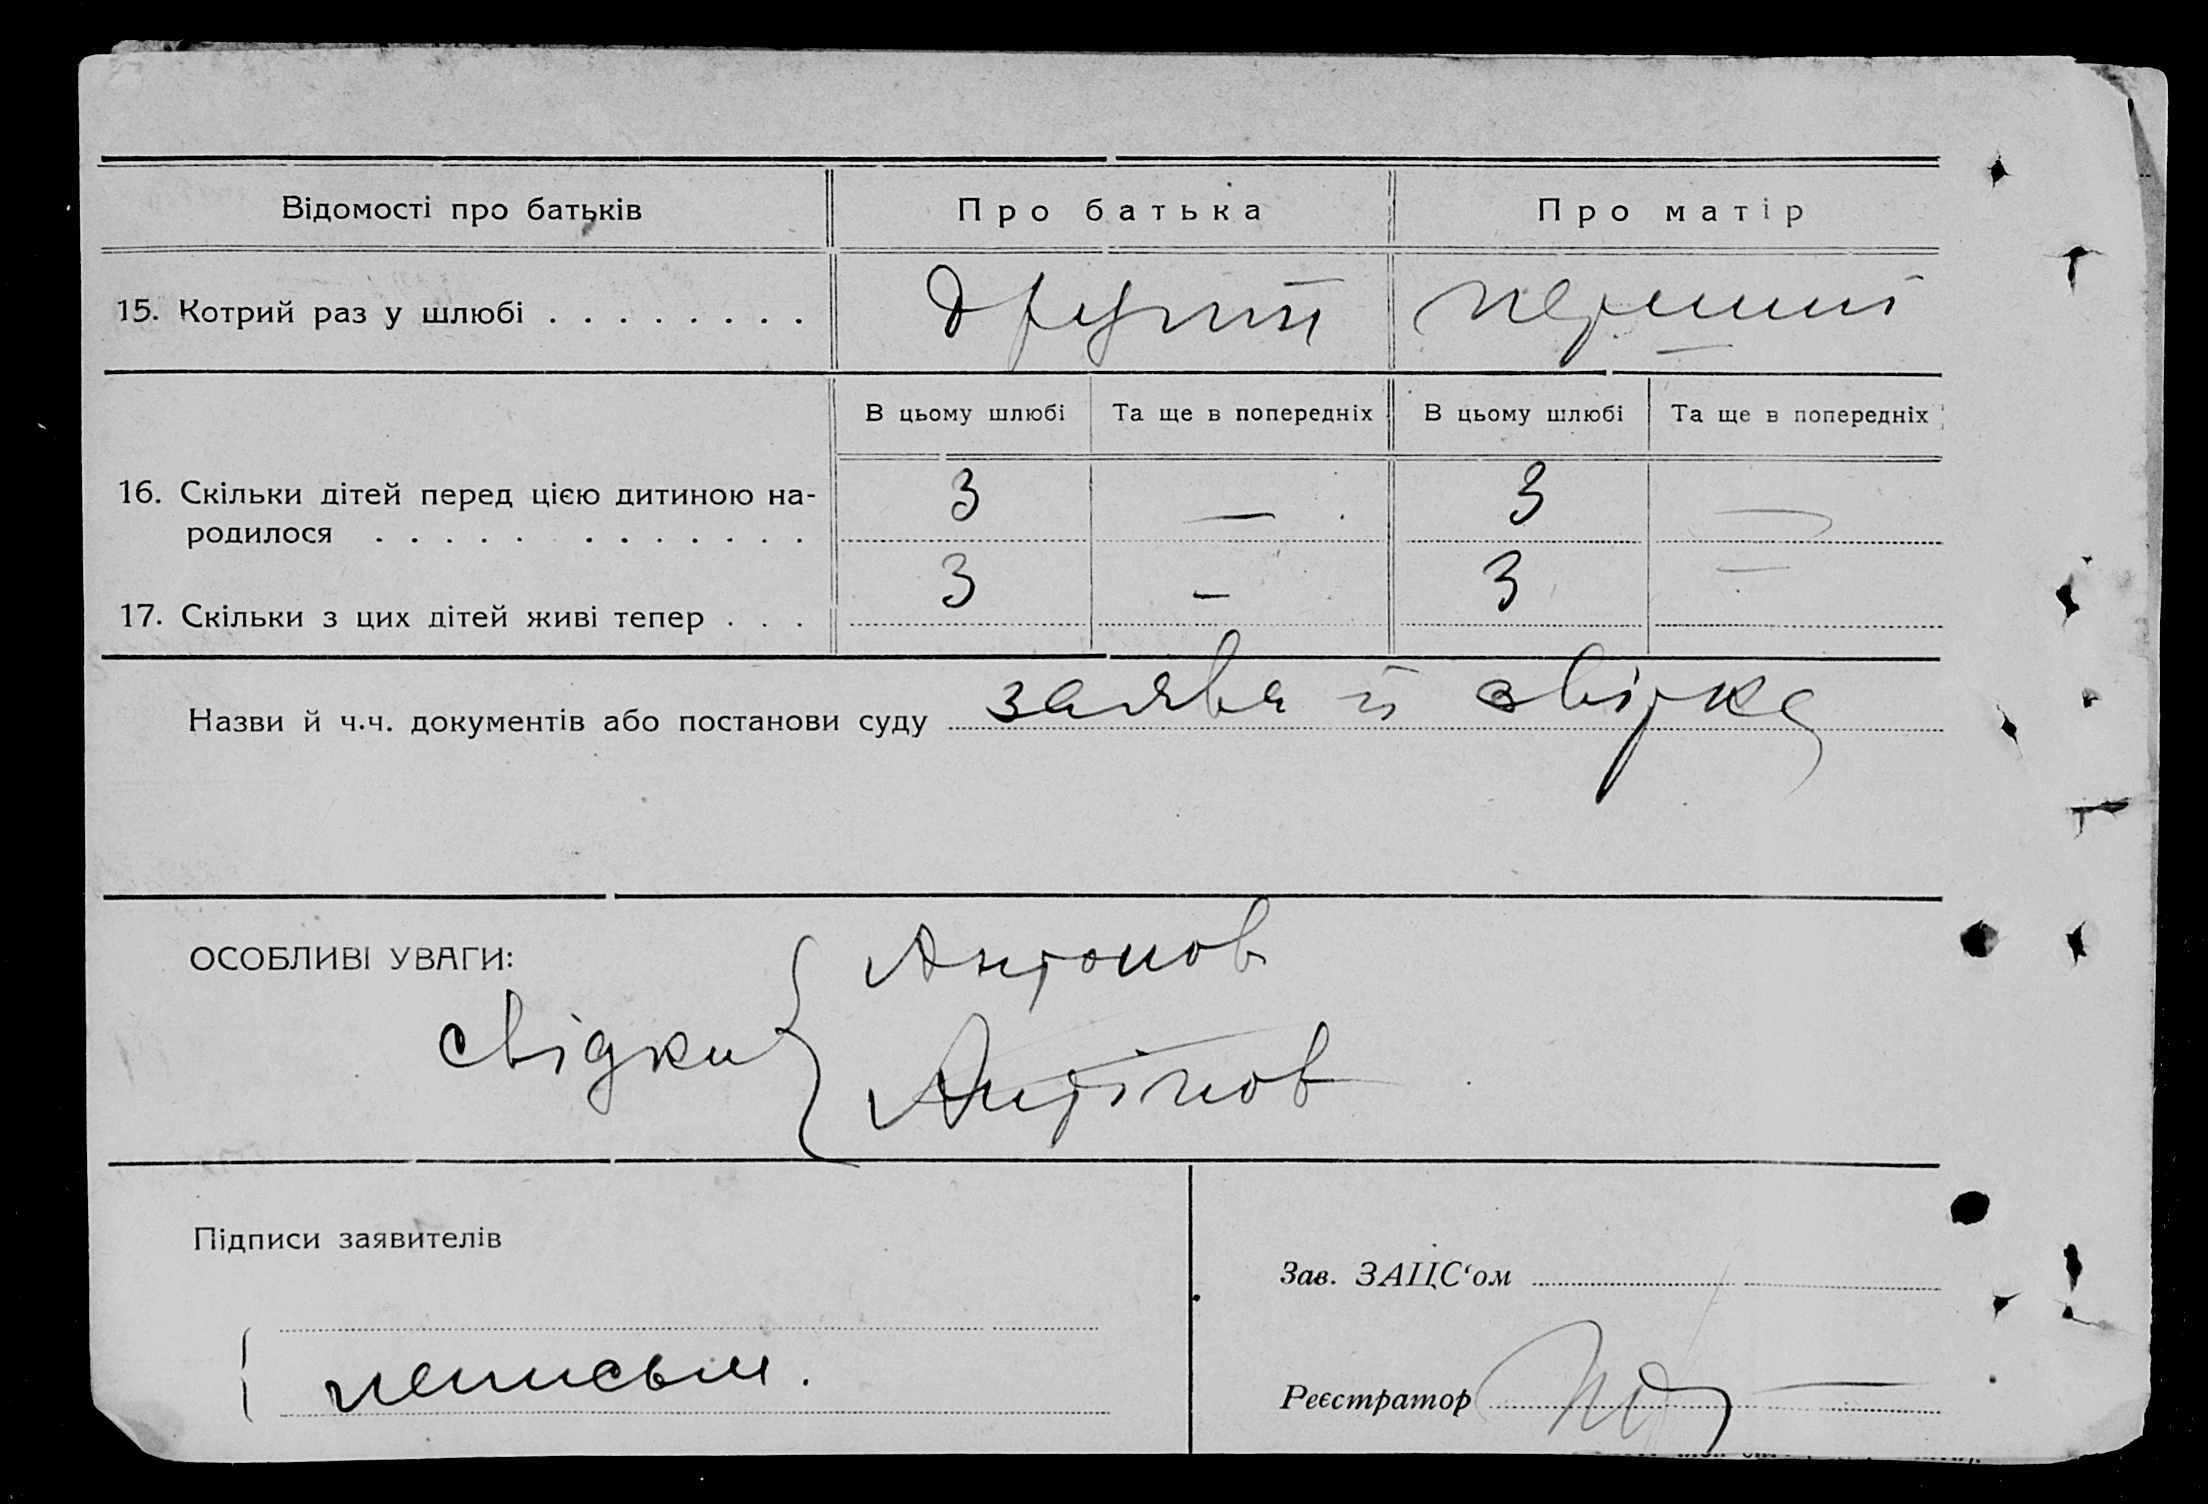 Відомості про батьків Про батька Про матір
15. Котрий раз у шлюбі . . . . . . . . другий перший
В цьому шлюбі Та ще в попередніх В цьому шлюбі Та ще в попередніх
16. Скільки дітей перед цією дитиною на- 3 — 3 —
родилося . . . . . . . . . . . . .
17. Скільки з цих дітей живі тепер . . . 3 — 3 —
Назви й ч.ч. документів або постанови суду заява й звірка
ОСОБЛИВІ УВАГИ:
Антонов
свідки
Підписи заявителів
Зав. ЗАЦС‘ом
неписьм.
Реєстратор